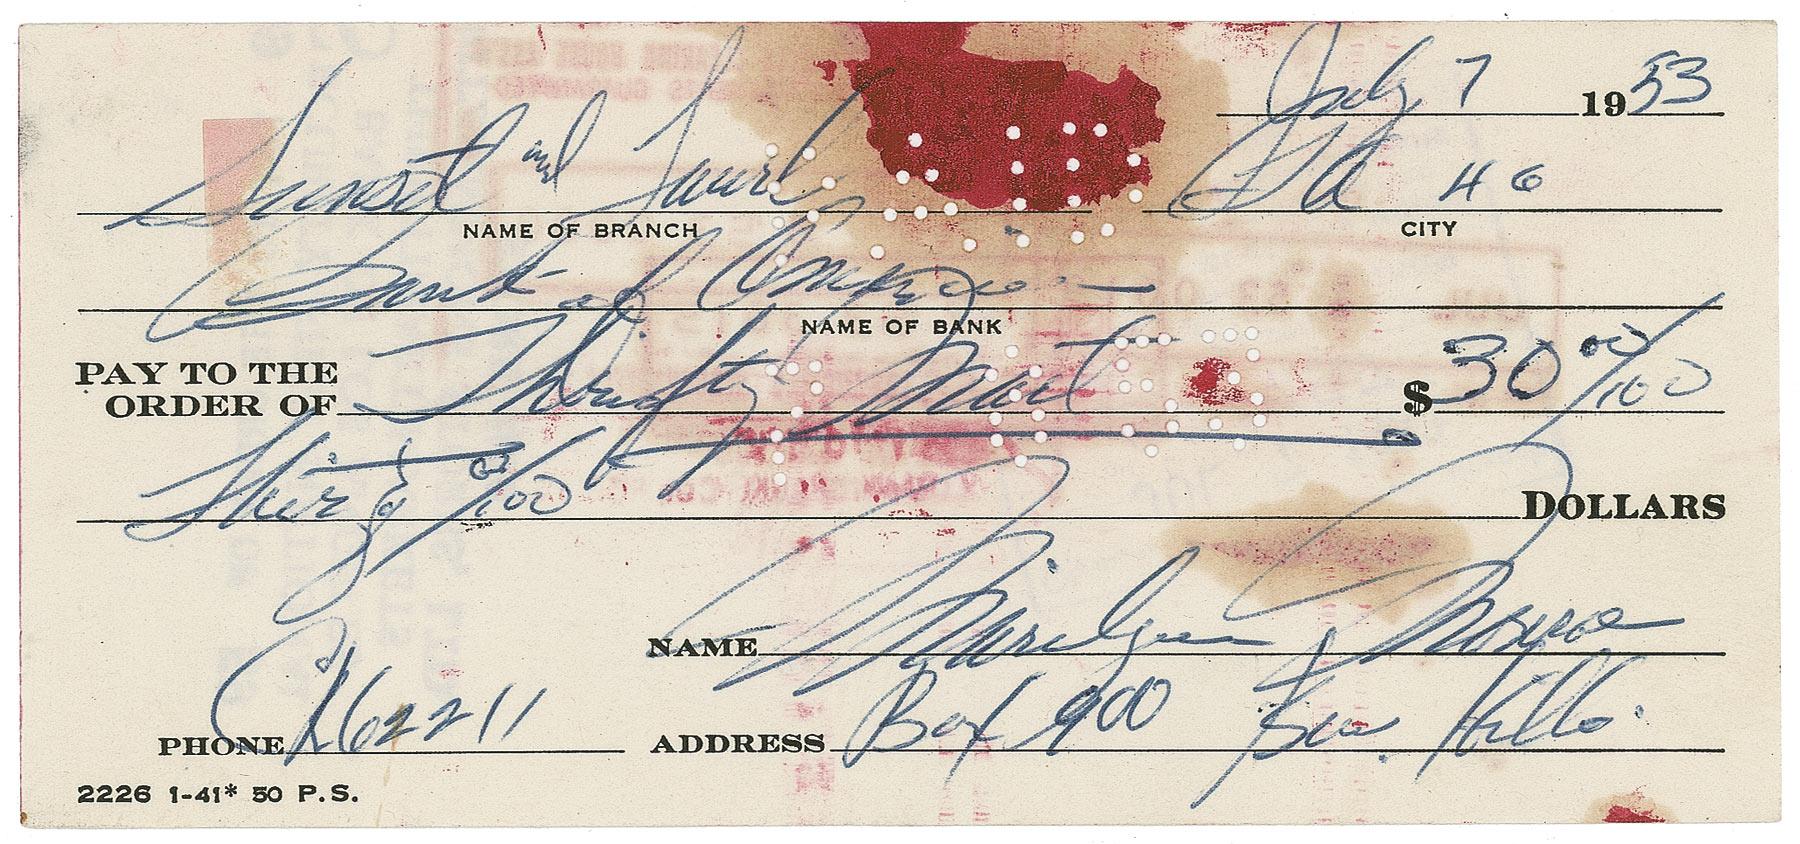 July 7 1953
Sunset and Laurel LA 46
NAME OF BRANCH CITY
Bank of America
NAME OF BANK
PAY TO THE ORDER OF Thrifty Mart $30 00/100
Thirty 00/100 DOLLARS
NAME Marilyn Monroe
PHONE 62211 ADDRESS Box 900 Bev. Hills.
2226 1-41* 50 P.S.